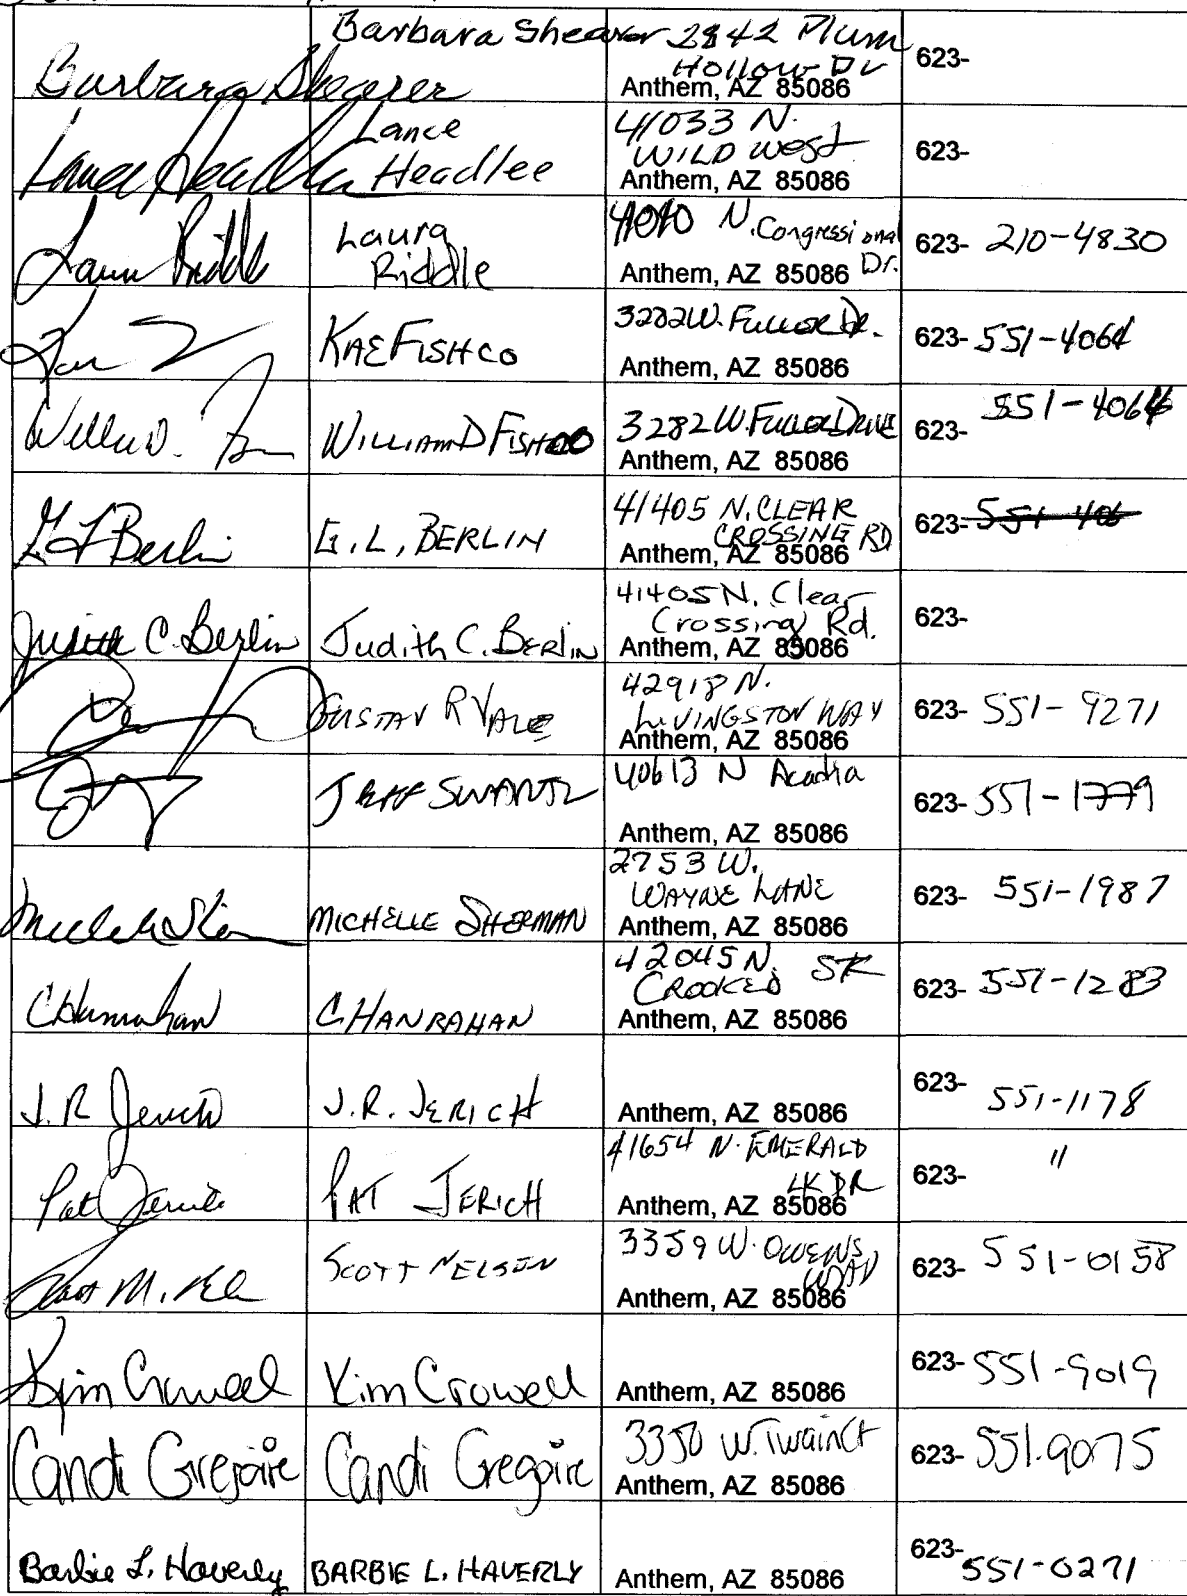 Barbara Shearer Barbara Shearer 2842 Plum
Hollow Dr
Anthem, AZ 85086 623-
Lance Headlee Lance
Headlee 41033 N.
WILD West
Anthem, AZ 85086 623-
Laura Riddle Laura
Riddle N. Congressional
Dr.
Anthem, AZ 85086 623- 210-4830
KAE FISHCO 3282 W. FULLER DR.
Anthem, AZ 85086 623- 551-4064
William D. WILLIAM D FISHCO 3282 W. FULLER DRIVE
Anthem, AZ 85086 623- 551-4064
G L Berlin G. L. BERLIN 41405 N. CLEAR
CROSSING RD
Anthem, AZ 85086 623- 551-406
Judith C. Berlin Judith C. BERLIN 41405 N. Clear
Crossing Rd.
Anthem, AZ 85086 623-
GUSTAV R VALE 42918 N.
LIVINGSTON WAY
Anthem, AZ 85086 623- 551-9271
JEFF SWANTZ 40613 N Acadia
Anthem, AZ 85086 623- 551-1779
MICHELLE SHERMAN 2753 W.
WAYNE LANE
Anthem, AZ 85086 623- 551-1987
C Hanrahan C HANRAHAN 42045 N.
CROOKED STK
Anthem, AZ 85086 623- 551-1283
J. R Jerich J. R. JERICH
Anthem, AZ 85086 623- 551-1178
Pat Jerich PAT JERICH 41654 N. EMERALD
LK DR
Anthem, AZ 85086 623- "
Scott M. SCOTT NELSON 3359 W. OWENS
WAY
Anthem, AZ 85086 623- 551-0158
Kim Crowell Kim Crowell
Anthem, AZ 85086 623- 551-9019
Candi Gregoire Candi Gregoire 3350 W. Twain Ct
Anthem, AZ 85086 623- 551.9075
Barbie L. Haverly BARBIE L. HAVERLY
Anthem, AZ 85086 623- 551-0271